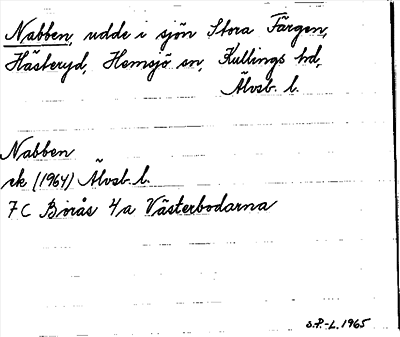 Nabben, udde i sjön Stora Färgen,
Hästeryd, Hemsjö sn, Kullings hd,
Älvsb. l.
Nabben
ek (1964) Älvsb. l.
7 C Borås 4a Västerbodarna
S.P.-L. 1965